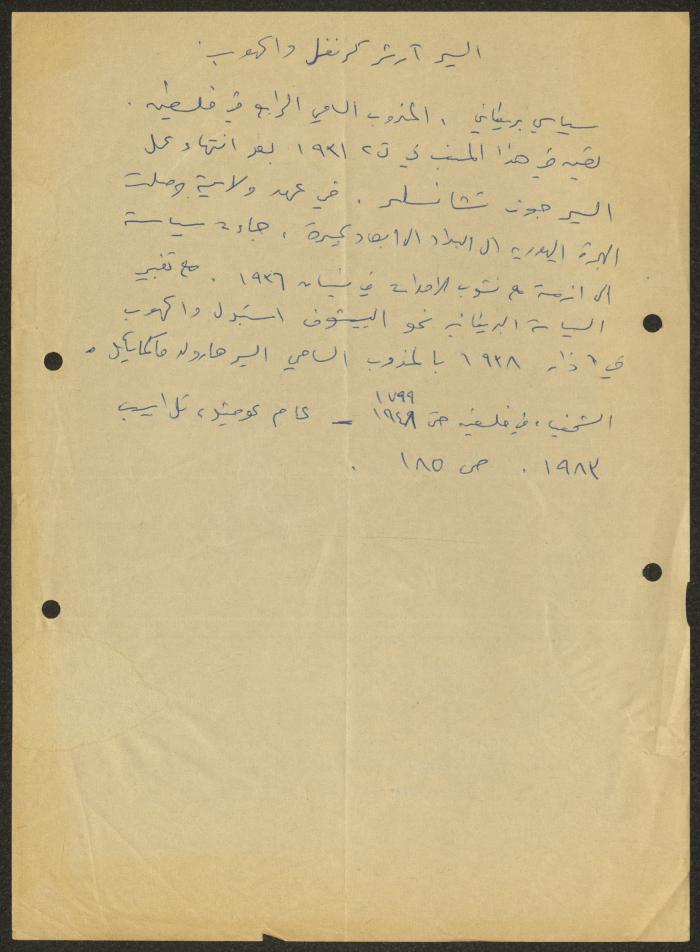 السير آرثر كرنفل واكهوب.
سياسي بريطاني، المندوب السامي الرابع في فلسطين.
تعين في هذا المنصب في ت٢ ١٩٣١ بعد انتهاء عمل
السير جون تشانسلر. في عهد ولايته وصلت
الهجرة اليهودية الى البلاد الى ابعاد كبيرة، جاءت سياسة
الى ازمة مع نشوب الاحداث في نيسان ١٩٣٦. مع تغيير
السياسة البريطانية نحو الييشوف استبدل واكهوب
في اذار ١٩٣٨ بالمندوب السامي السير هارولد ماكمايكل.
الشخصيات في فلسطين حتى ١٧٩٩ ١٩٤٨ - تل ابيب
١٩٨٣. ص ١٨٥.